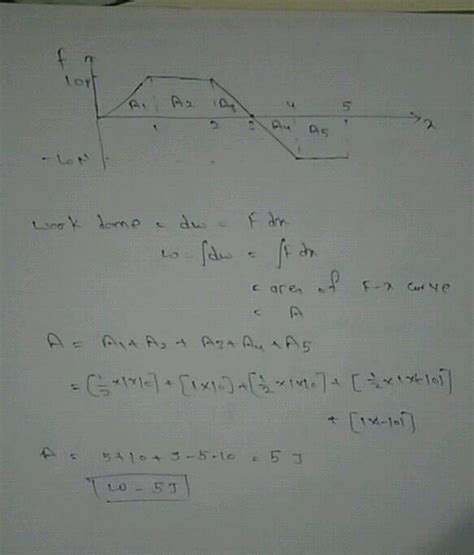 F
10N
A1 A2 A3 4 5
1 2 3 A4 A5 x
-10N
work done = dw = F dx
w = ∫dw = ∫F dx
= area of F-x curve
= A
A = A1 + A2 + A3 + A4 + A5
= [1/2 × 1 × 10] + [1 × 10] + [1/2 × 1 × 10] + [1/2 × 1 × -10]
+ [1 × -10]
A = 5 + 10 + 5 - 5 - 10 = 5 J
w = 5J